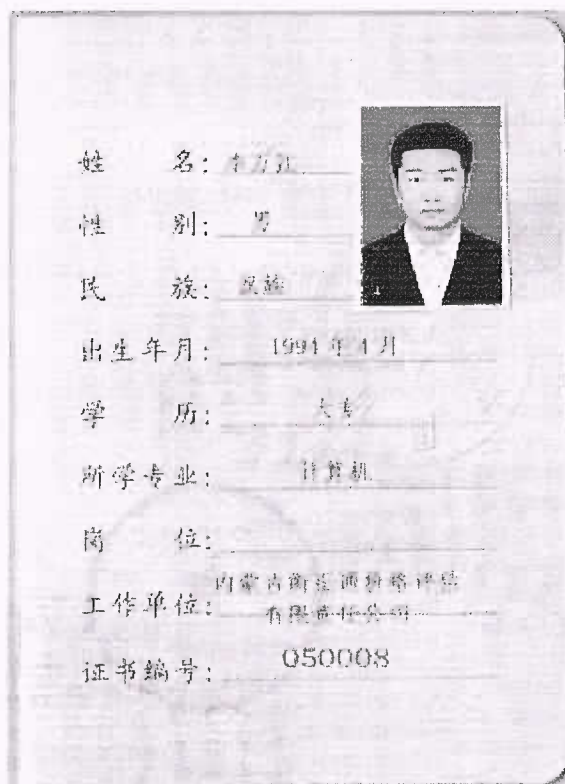 姓 名:
性 别: 男
民 族:
出生年月: 1991年4月
学 历: 大专
所学专业: 计算机
岗 位:
工作单位: 内蒙古 价格评估
有限责任公司
证书编号: 050008